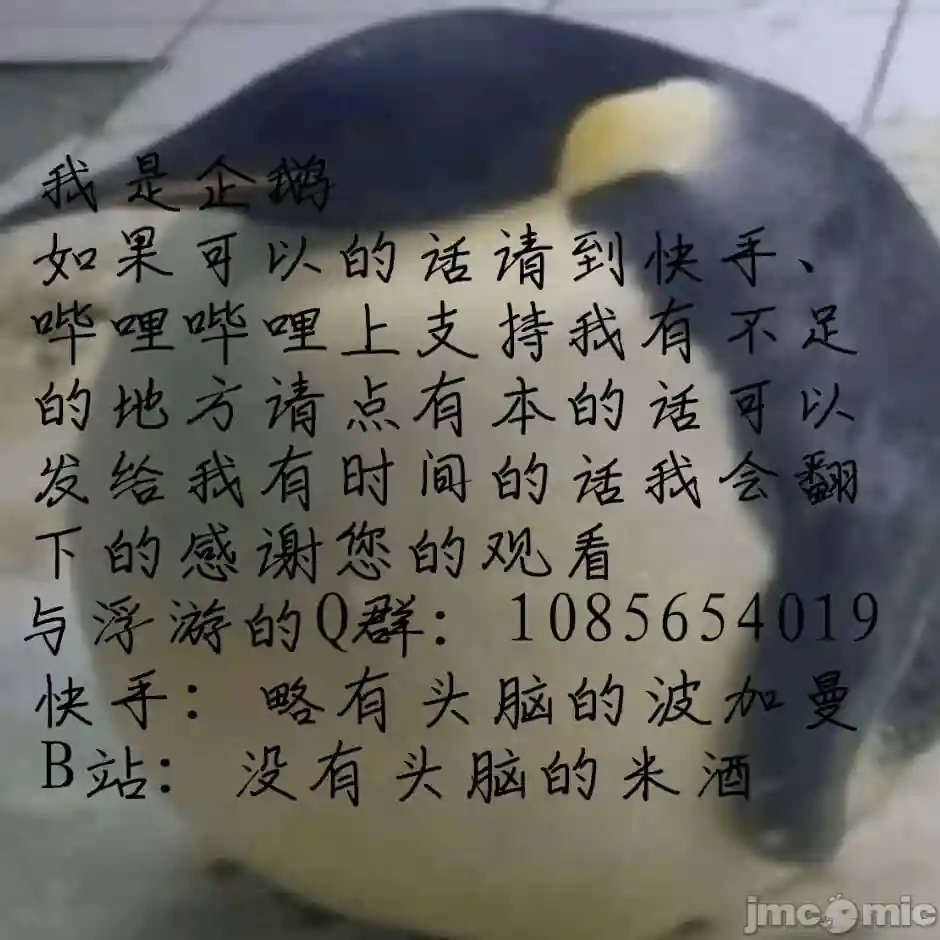 我是企鹅
如果可以的话请到快手、
哔哩哔哩上支持我有不足
的地方请点有本的话可以
发给我有时间的话我会翻
下的感谢您的观看
与浮游的Q群：1085654019
快手：略有头脑的波加曼
B站：没有头脑的米酒
jmcomic